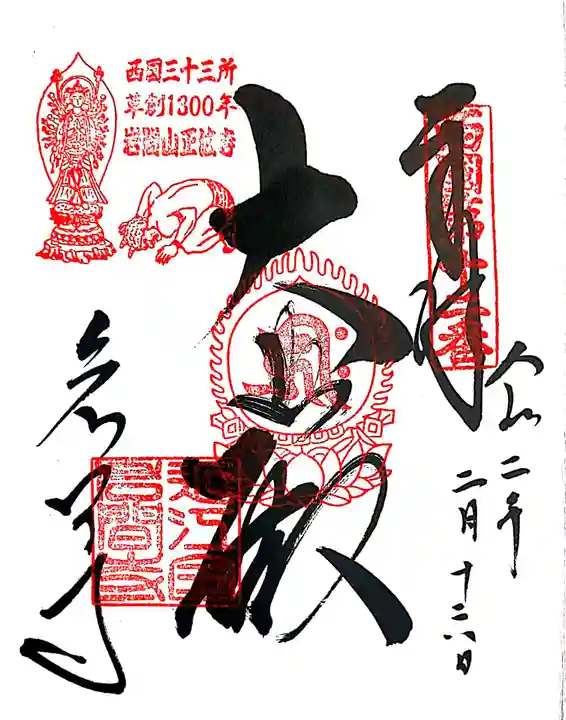 奉拝
西国第十二番
令和二年
二月十六日
大悲殿
西国三十三所
草創1300年
岩間山正法寺
岩間寺
近江国
岩間寺